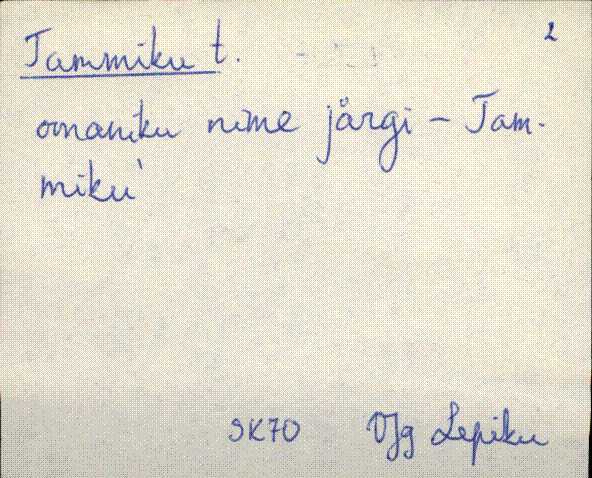 2
Tammiku t.
omaniku nime järgi – Tam-
miku
SK70 VJg Lepiku